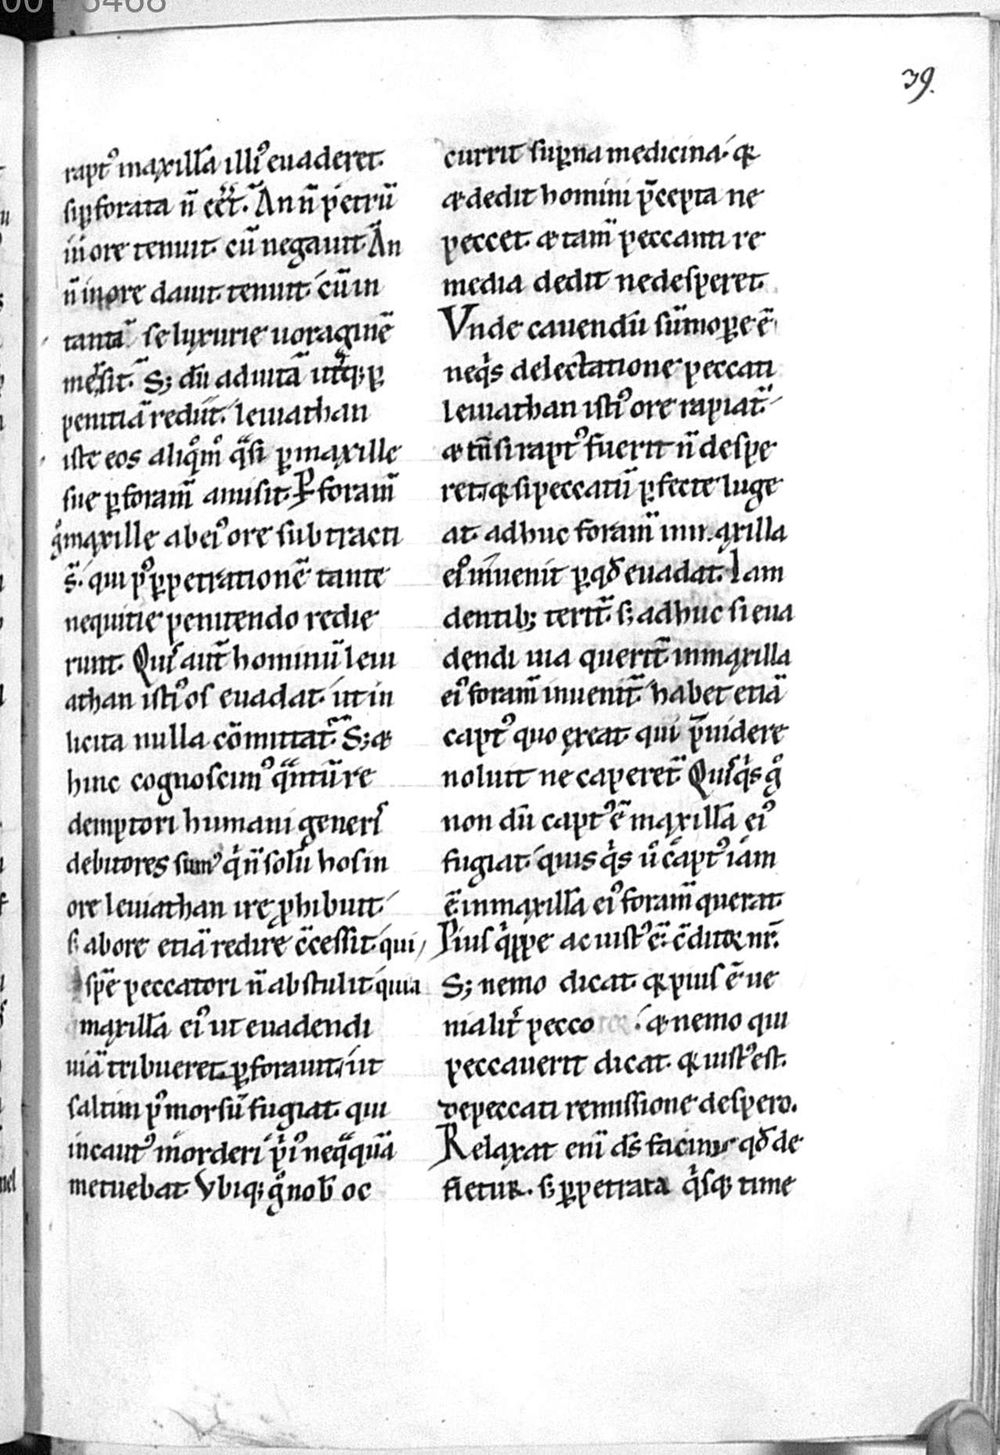 39.
rapt᷒ maxilla illi᷒ euaderet.
si p̱forata n̄ eēt. An n̄ petrū
in ore tenuit. cū negauit. An
n̄ in ore dauit tenuit cū in
tanta se luxurie uoraginē
mersit. S; dū ad uitā ut̾q; ꝑ
penitiā rediit. leuiathan
iste eos aliqͦmͦ qͣsi ꝑ maxille
sue ꝑforam̄ amisit. Ꝑ foram̄
gͦ maxille ab ei᷒ ore subtracti
s̄. qui p᷒ ꝑpetrationē tante
nequitie penitendo redie
runt. Quis aut̄ hominū leui
athan isti᷒ os euadat. ut in
licita nulla cōmittat. S; &
hinc cognoscim᷒ qͣntū re
demptori humani generis
debitores sum᷒ qͥ n̄ solū nos in
ore leuiathan ire ꝓhibuit.
s; ab ore etiā redire c̄cessit. qui
spē peccatori n̄ abstulit quia
maxillā ei᷒ ut euadendi
uiā tribueret. ꝑforauit. ut
saltim p᷒ morsū fugiat. qui
incaut᷒ morderi pͥ᷒ neqͣquā
metuebat. Vbiq; gͦ nob̄ oc
currit sup̱na medicina. q̄
& dedit homini p̄cepta ne
peccet. & tam̄ peccanti re
media dedit ne desperet.
Vnde cauendū sūmoꝑe ē
ne qͥs delectatione peccati
leuiathan isti᷒ ore rapiat᷑.
& tn̄ si rapt᷒ fuerit n̄ despe
ret. q̄ si peccatū ꝑfecte luge
at. adhuc foram̄ in maxilla
ei᷒ inuenit ꝑ qđ euadat. Iam
dentib; terit᷑. s; adhuc si eua
dendi uia querit᷑. in maxilla
ei᷒ foram̄ inuenit᷑. habet etiā
capt᷒ quo exeat qui p̄uidere
noluit ne caperet᷑. Quisqͥs gͦ
non dū capt᷒ ē maxillā ei᷒
fugiat. quisqͥs ū capt᷒ iam
ē. in maxilla ei᷒ foram̄ querat.
Pius qͥppe ac iust᷒ ē c̄ditor nr̄.
S; nemo dicat. q̄ pius ē ue
nialit᷑ pecco . & nemo qui
peccauerit dicat. q̄ iust᷒ est.
de peccati remissione despero.
Relaxat enī dš facin᷒ qđ de
fletur. s; ꝑpetrata qͥsq; time